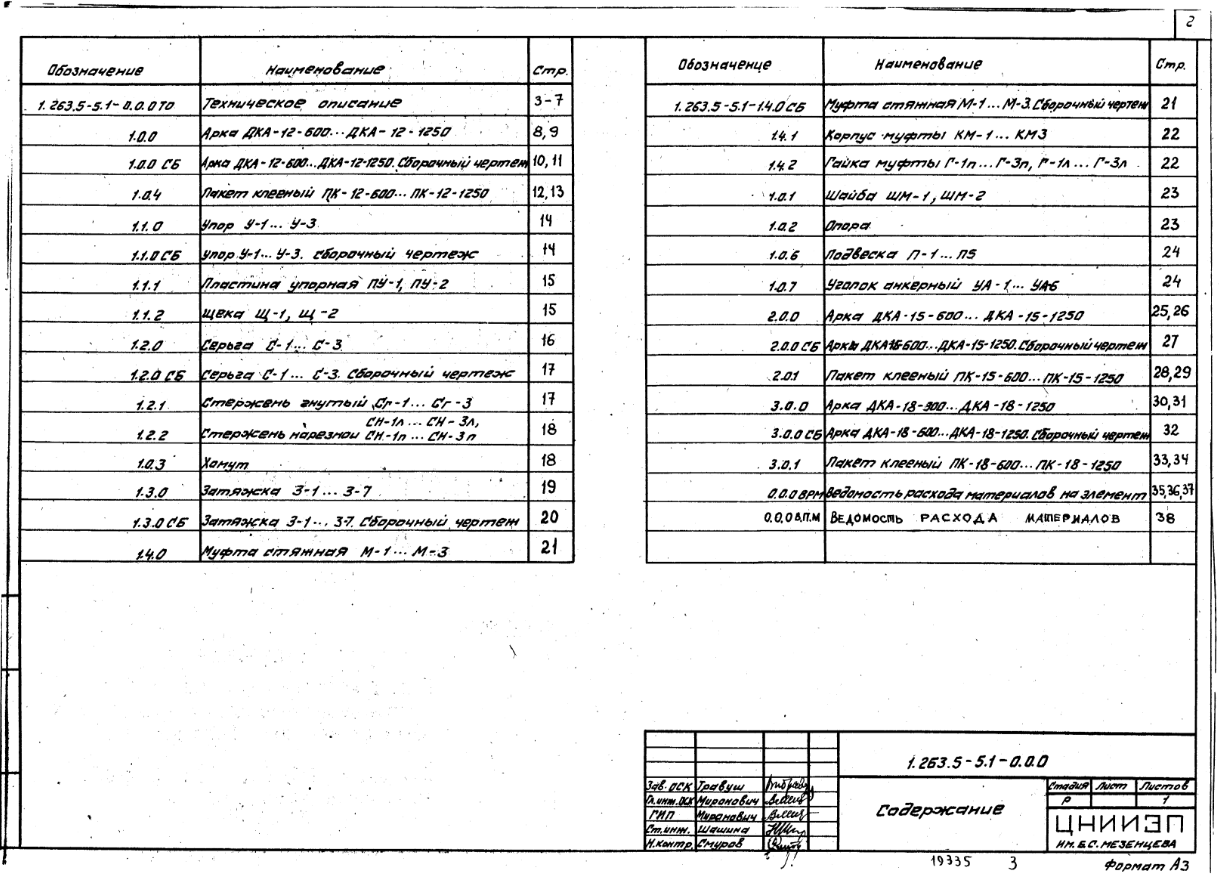 2
Обозначение Наименование Стр.
1.263.5-5.1-0.0.0 ТО Техническое описание 3-7
1.0.0 Арка ДКА-12-600... ДКА-12-1250 8,9
1.0.0 СБ Арка ДКА-12-600...ДКА-12-1250. Сборочный чертеж 10,11
1.0.4 Пакет клееный ПК-12-600... ПК-12-1250 12,13
1.1.0 Упор У-1... У-3 14
1.1.0 СБ Упор У-1... У-3. Сборочный чертеж 14
1.1.1 Пластина упорная ПУ-1, ПУ-2 15
1.1.2 Щека Щ-1, Щ-2 15
1.2.0 Серьга С-1... С-3 16
1.2.0 СБ Серьга С-1... С-3. Сборочный чертеж 17
1.2.1 Стержень гнутый Сг-1... Сг-3 17
СН-1л ... СН-3л,
1.2.2 Стержень нарезной СН-1п ... СН-3п 18
1.0.3 Хомут 18
1.3.0 Затяжка З-1... З-7 19
1.3.0 СБ Затяжка З-1... З-7. Сборочный чертеж 20
1.4.0 Муфта стяжная М-1... М-3 21
Обозначение Наименование Стр.
1.263.5-5.1-1.4.0 СБ Муфта стяжная М-1... М-3. Сборочный чертеж 21
1.4.1 Корпус муфты КМ-1... КМ3 22
1.4.2 Гайка муфты Г-1п... Г-3п, Г-1л... Г-3л 22
1.0.1 Шайба ШМ-1, ШМ-2 23
1.0.2 Опора 23
1.0.6 Подвеска П-1... П5 24
1.0.7 Уголок анкерный УА-1... УА6 24
2.0.0 Арка ДКА-15-600... ДКА-15-1250 25,26
2.0.0 СБ Арка ДКА15-600...ДКА-15-1250. Сборочный чертеж 27
2.0.1 Пакет клееный ПК-15-600...ПК-15-1250 28,29
3.0.0 Арка ДКА-18-900...ДКА-18-1250 30,31
3.0.0 СБ Арка ДКА-18-600...ДКА-18-1250. Сборочный чертеж 32
3.0.1 Пакет клееный ПК-18-600... ПК-18-1250 33,34
0.0.0 ВРМ Ведомость расхода материалов на элемент 35,36,37
0.0.0 В.П.М ВЕДОМОСТЬ РАСХОДА МАТЕРИАЛОВ 38
1.263.5-5.1-0.0.0
Зав. ОСК Травуш
Гл.инж.ОСК Миронович
ГИП Миронович
Ст.инж. Шашина
Н.контр. Смуров
Содержание
Стадия Лист Листов
Р 1
ЦНИИЭП
ИМ. Б.С. МЕЗЕНЦЕВА
19335 3
Формат А3